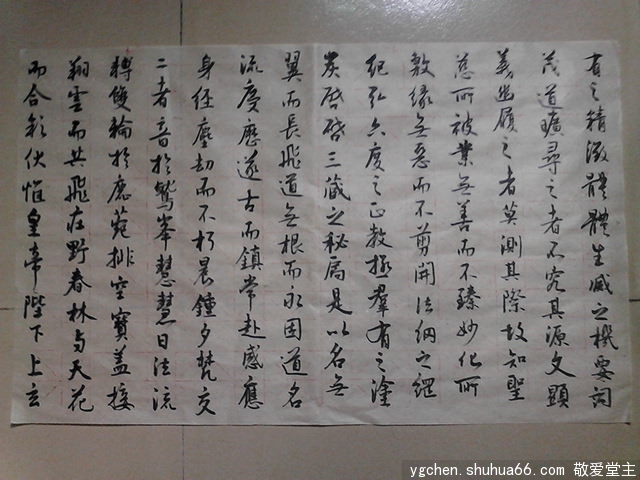 有之精微體體生滅之機要詞
茂道曠尋之者不究其源文顯
義幽履之者莫測其際故知聖
慈所被業無善而不臻妙化所
敷緣無惡而不剪開法網之綱
紀弘六度之正教拯羣有之塗
炭啓啓三藏之秘扃是以名無
翼而長飛道無根而永固道名
流慶歷遂古而鎮常赴感應
身經塵劫而不朽晨鍾夕梵交
二者音於鷲峯慧慧日法流
轉雙輪於鹿苑排空寶盖接
翔雲而共飛莊野春林與天花
而合彩伏惟皇帝陛下上玄
ygchen.shuhua66.com 敬爱堂主